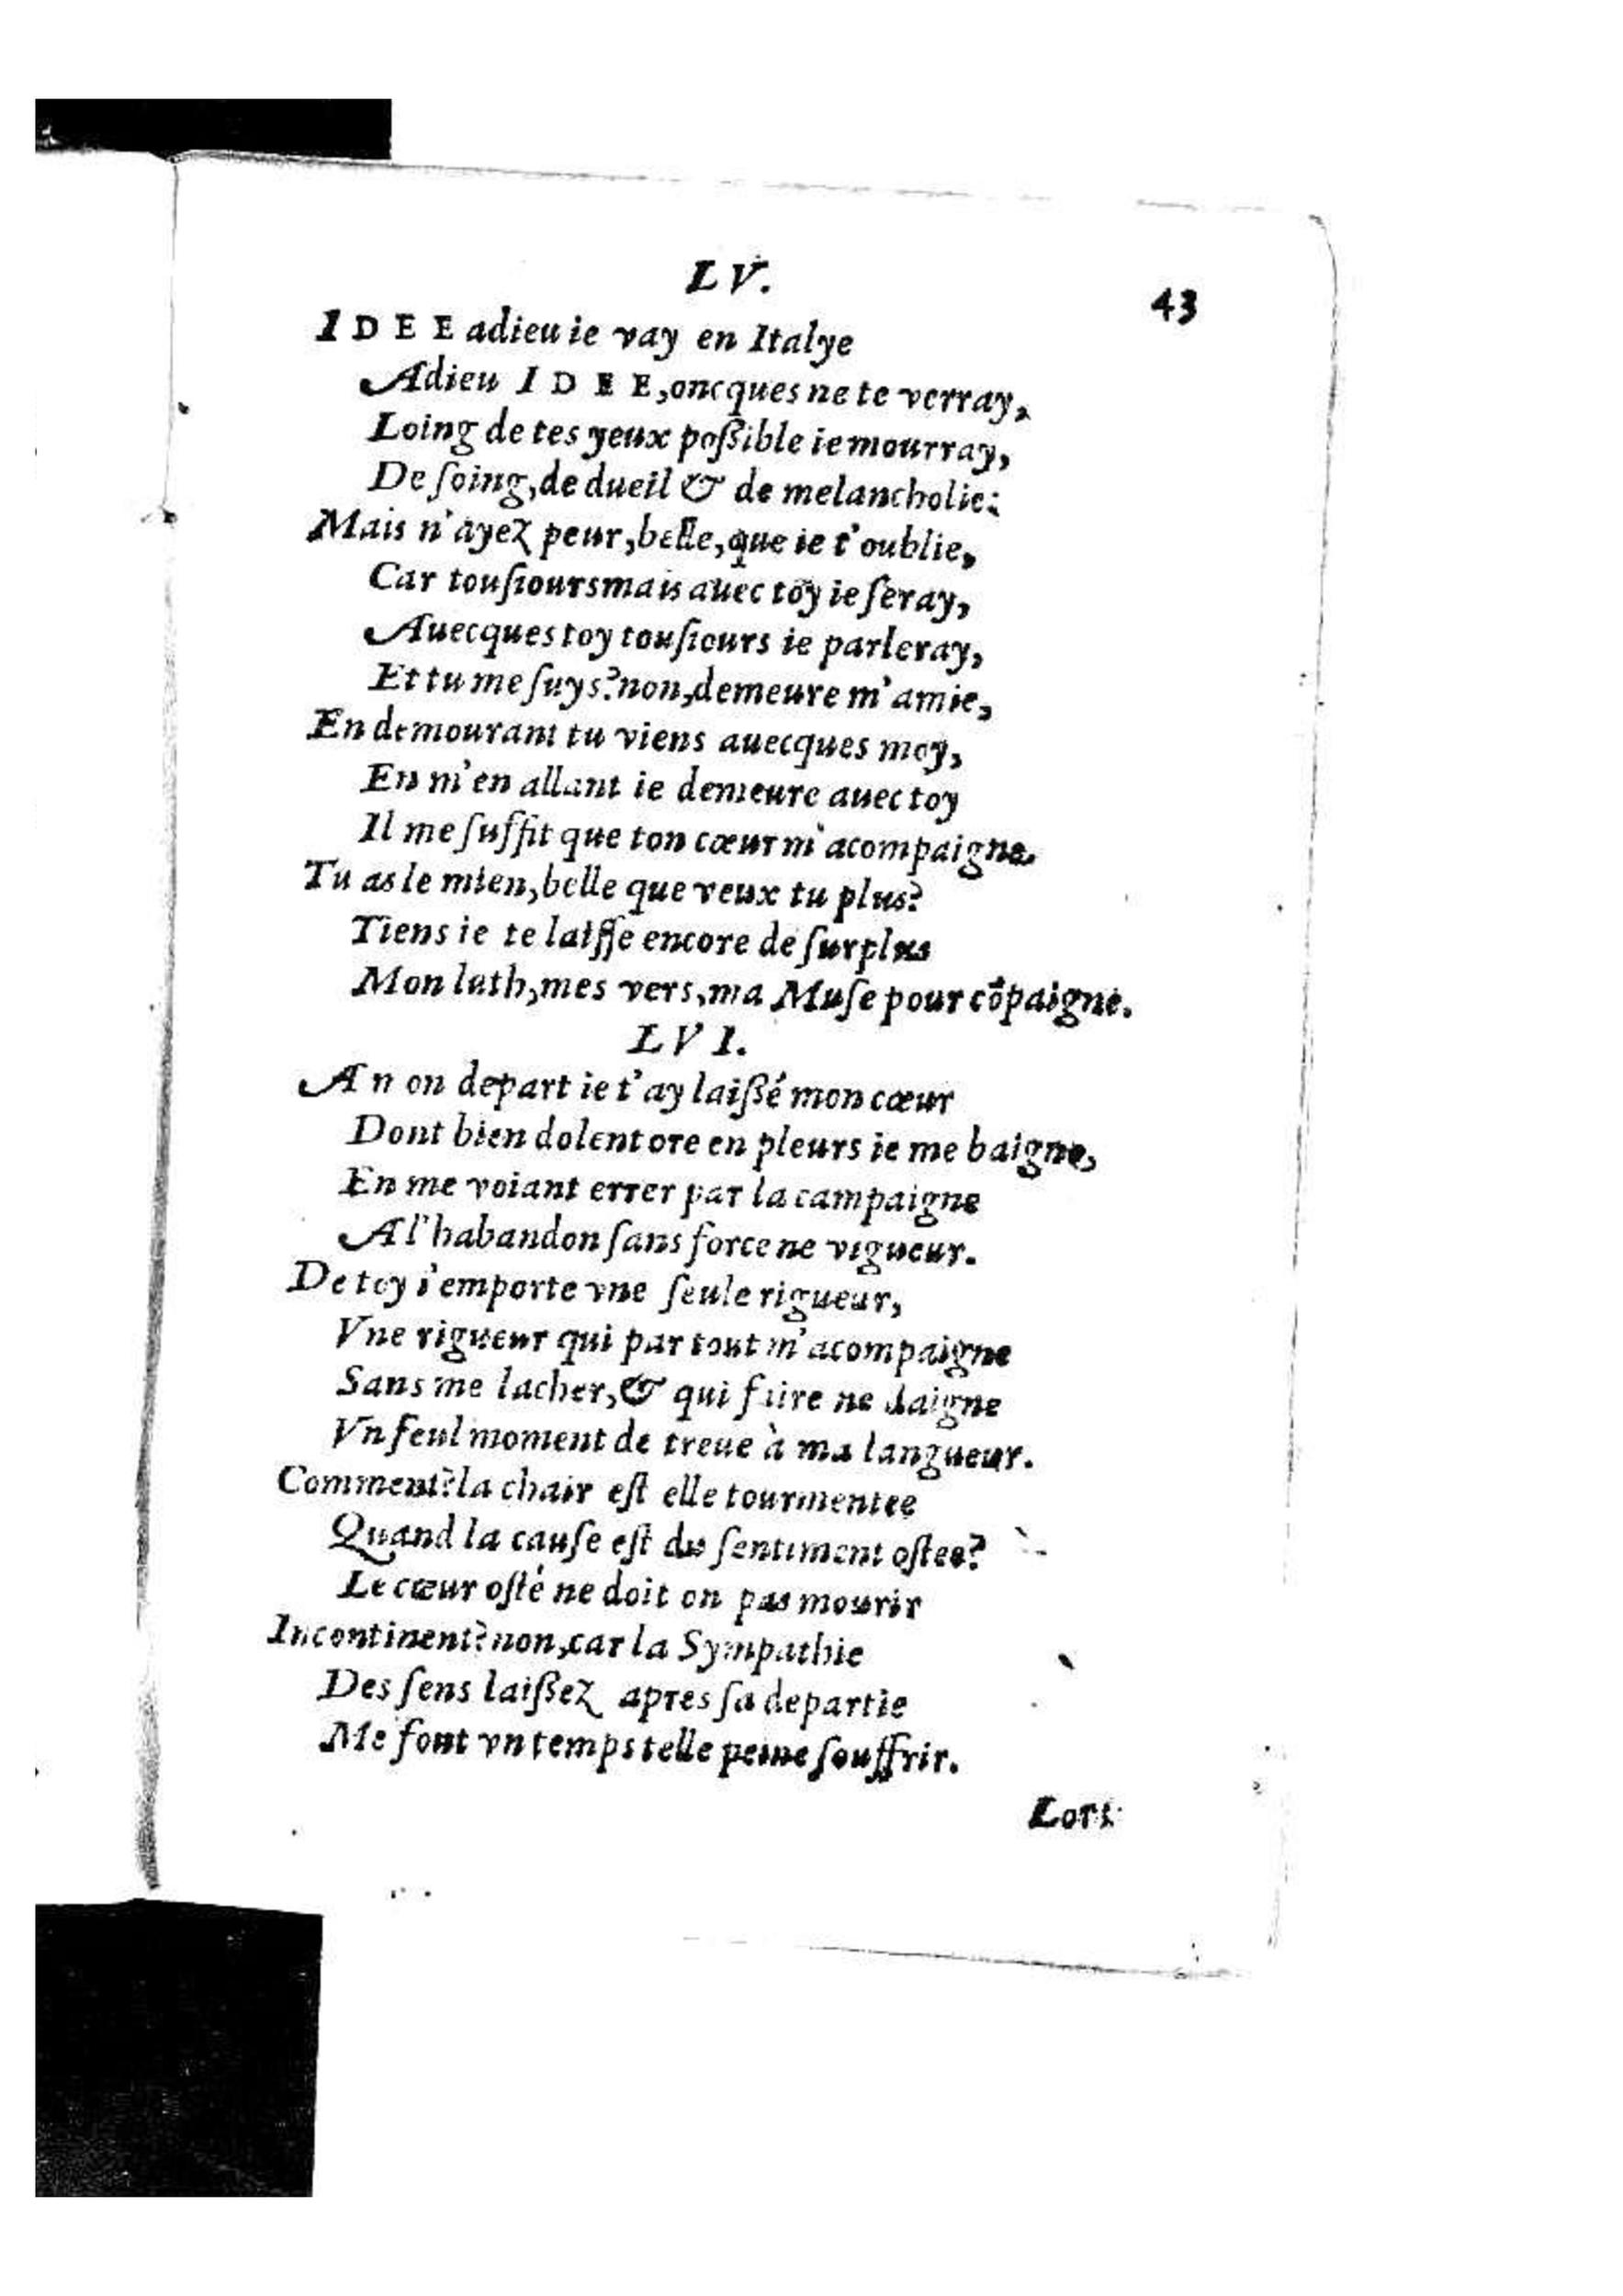 LV.
43
IDEE adieu ie vay en Italye
Adieu IDEE, oncques ne te verray,
Loing de tes yeux poßible ie mourray,
De ſoing, de dueil & de melancholie:
Mais n'ayez peur, belle, que ie t'oublie,
Car touſioursmais auec toy ie ſeray,
Auecques toy touſiours ie parleray,
Et tu me ſuys? non, demeure m'amie,
En demourant tu viens auecques moy,
En m'en allant ie demeure auec toy
Il me ſuffit que ton cœur m'acompaigne.
Tu as le mien, belle que veux tu plus?
Tiens ie te laiſſe encore de ſurplus
Mon luth, mes vers, ma Muſe pour cõpaigne.
LVI.
An on depart ie t'ay laißé mon cœur
Dont bien dolent ore en pleurs ie me baigne,
En me voiant errer par la campaigne
A l'habandon ſans force ne vigueur.
De toy i'emporte vne ſeule rigueur,
Vne rigueur qui par tout m'acompaigne
Sans me lacher, & qui faire ne daigne
Vn ſeul moment de treue à ma langueur.
Comment? la chair eſt elle tourmentee
Quand la cauſe eſt du ſentiment oſtee?
Le cœur oſté ne doit on pas mourir
Incontinent? non, car la Sympathie
Des ſens laißez apres ſa departie
Me font vn temps telle peine ſouffrir.
Lors